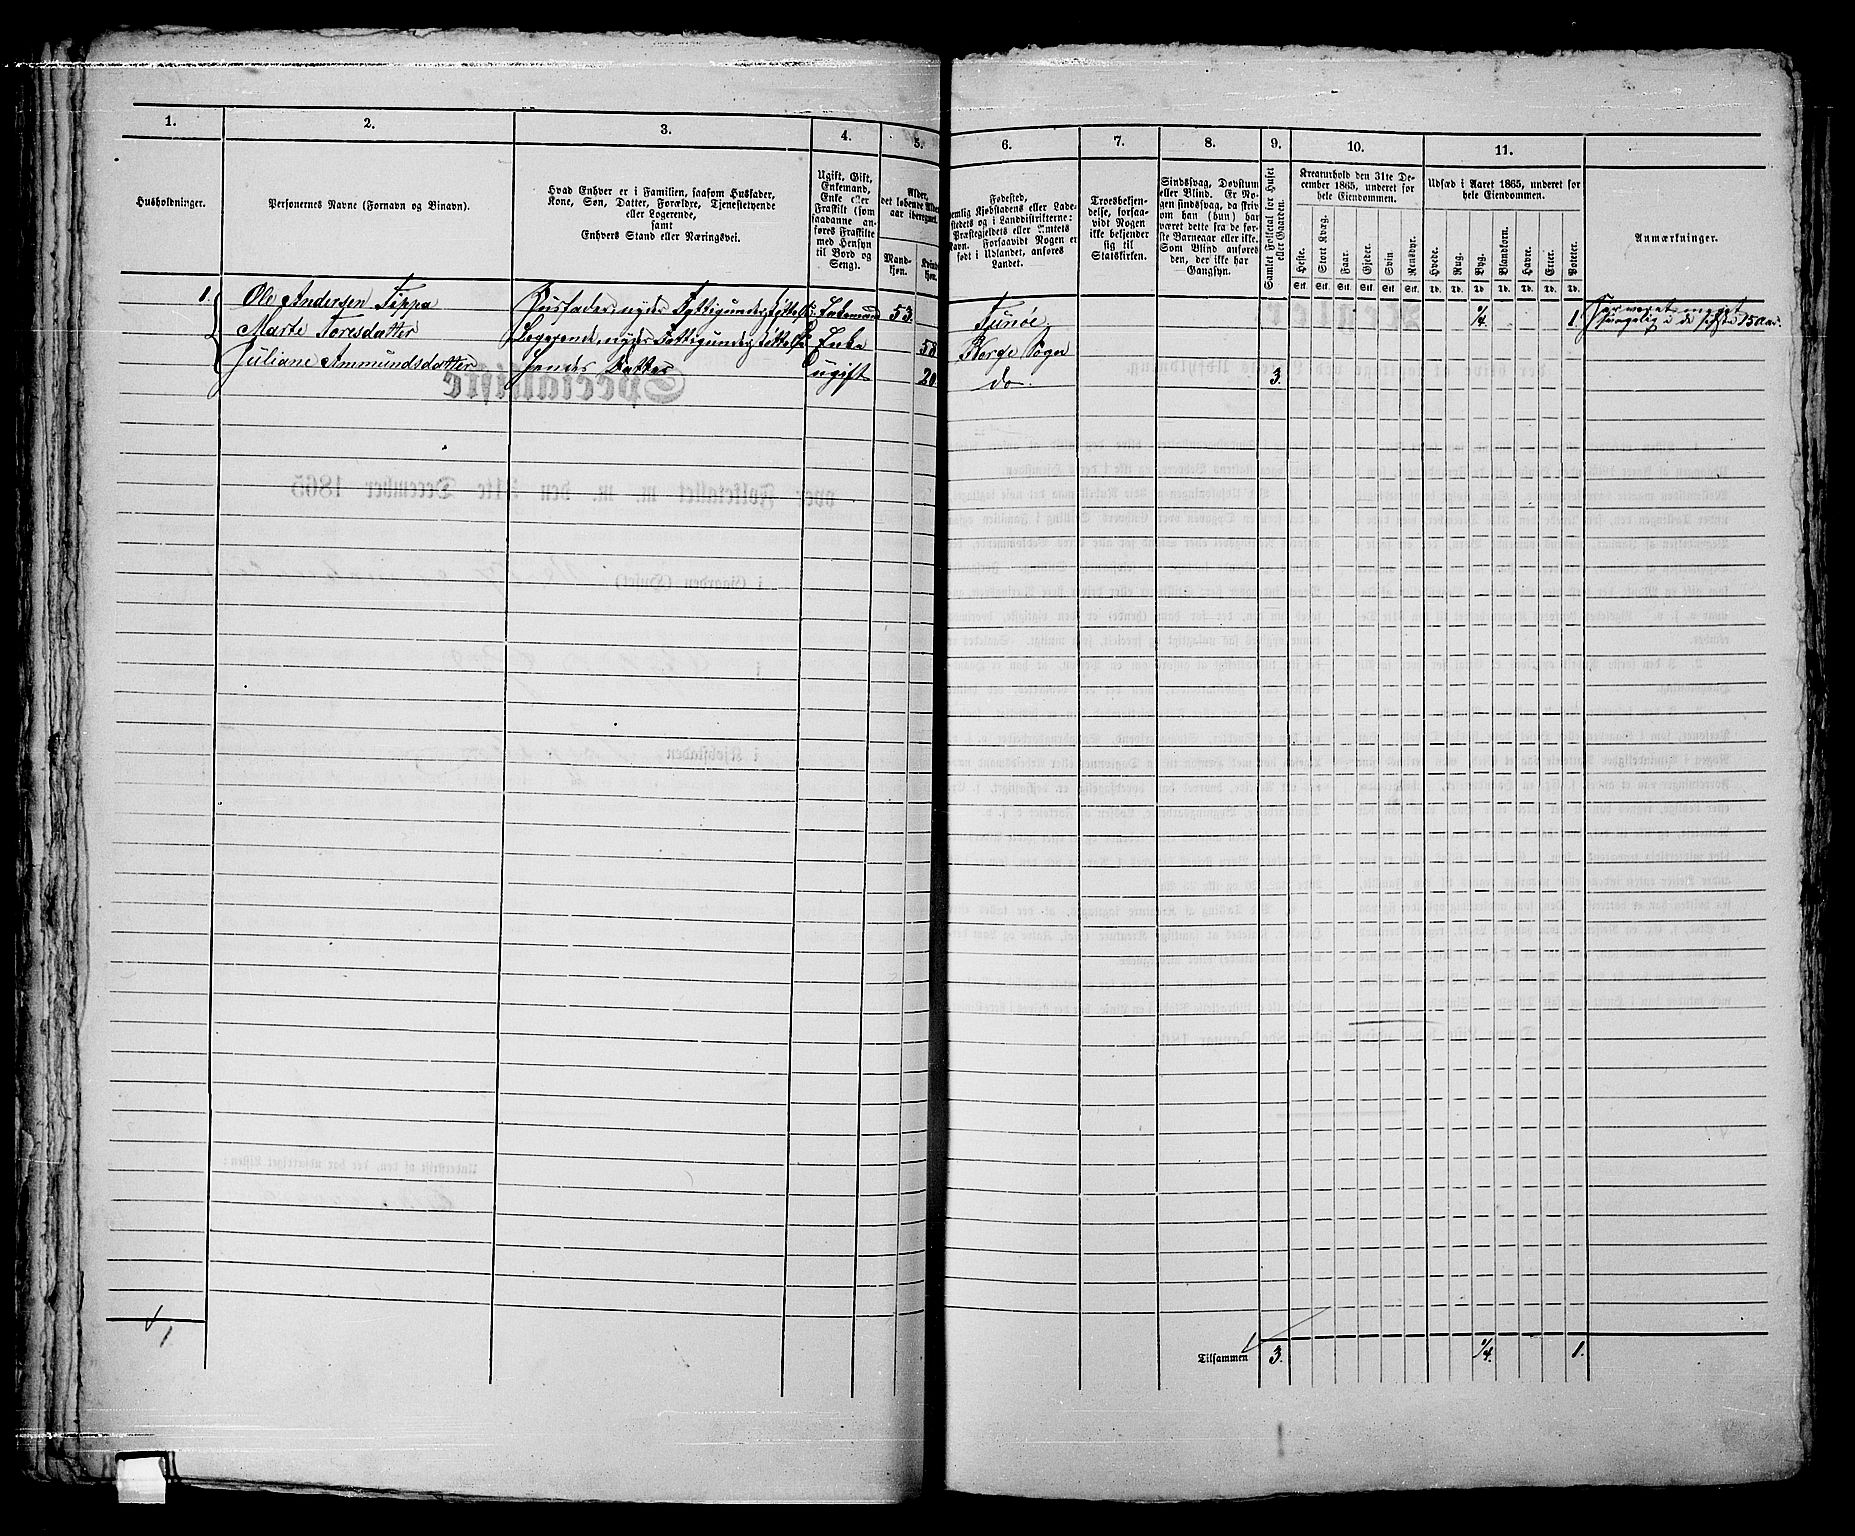 1. 2. 3. 4. 5. 6. 7. 8. 9. 10. 11.
Husholdninger.
Personernes Navne (Fornavn og Binavn).
Hvad Enhver er i Familien, saasom Husfader,
Kone, Søn, Datter, Forældre, Tjenestetyende
eller Logerende,
samt
Enhvers Stand eller Næringsvei.
Ugift, Gift,
Enkemand,
Enke eller
Fraskilt (som
saadanne an-
føres Fraskilte
med Hensyn
til Bord og
Seng).
Alder,
det løbende Alders-
aar iberegnet.
Mand-
kjøn.
Kvinde-
kjøn.
Fødested,
nemlig Kjøbstadens eller Lade-
stedets og i Landdistrikterne:
Præstegjeldets eller Amtets
Navn. Forsaavidt Nogen er
født i Udlandet, anføres
Landet.
Troesbekjen-
delse, forsaa-
vidt Nogen
ikke bekjender
sig til
Statskirken.
Sindssvag, Døvstum
eller Blind. Er No-
gen sindssvag, da skriv
om han (hun) har
været dette fra de før-
ste Barneaar eller ikke.
Som Blind anføres
den, der ikke har
Gangsyn.
Samlet Folketal for Huset
eller Gaarden.
Kreaturhold den 31te De-
cember 1865, underet for
hele Eiendommen.
Heste. Stort Kvæg. Faar. Gjeder. Svin Rensdyr.
Stk. Stk. Stk. Stk. Stk. Stk.
Udsæd i Aaret 1865, underet for
hele Eiendommen.
Hvede. Rug. Byg. Blandkorn. Havre. Erter. Poteter.
Td. Td. Td. Td. Td. Td. Td.
Anmærkninger.
1. Ole Andersen Tippa Husfader, nyder Fattigunderstøttelse Enkemand 53. Tunøe 1/4 1.
Marte Toresdatter Logerende, nyder Fattigunderstøttelse Enke 58 Berge Sogn
Juliane Ammundsdatter hendes Datter ugift 20 do 3.
Har været meget
svagelig i de sidste 15 Aar.
1
Tilsammen 3. 1/4. 1.